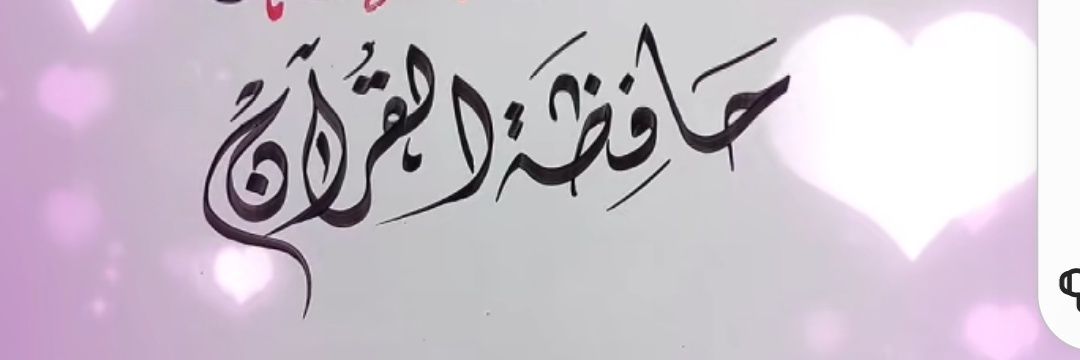 حافظة القرآن